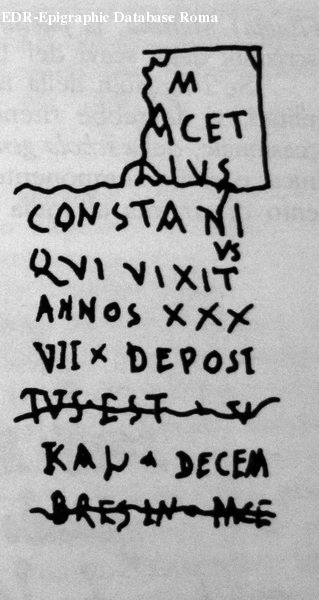 EDR-Epigraphic Database Roma
M
ACET
RIVS
CONSTANI
VS
QVI VIXIT
ANNOS XXX
VII X DEPOSI
TVS EST
KAL DECEM
BRES IN PACE